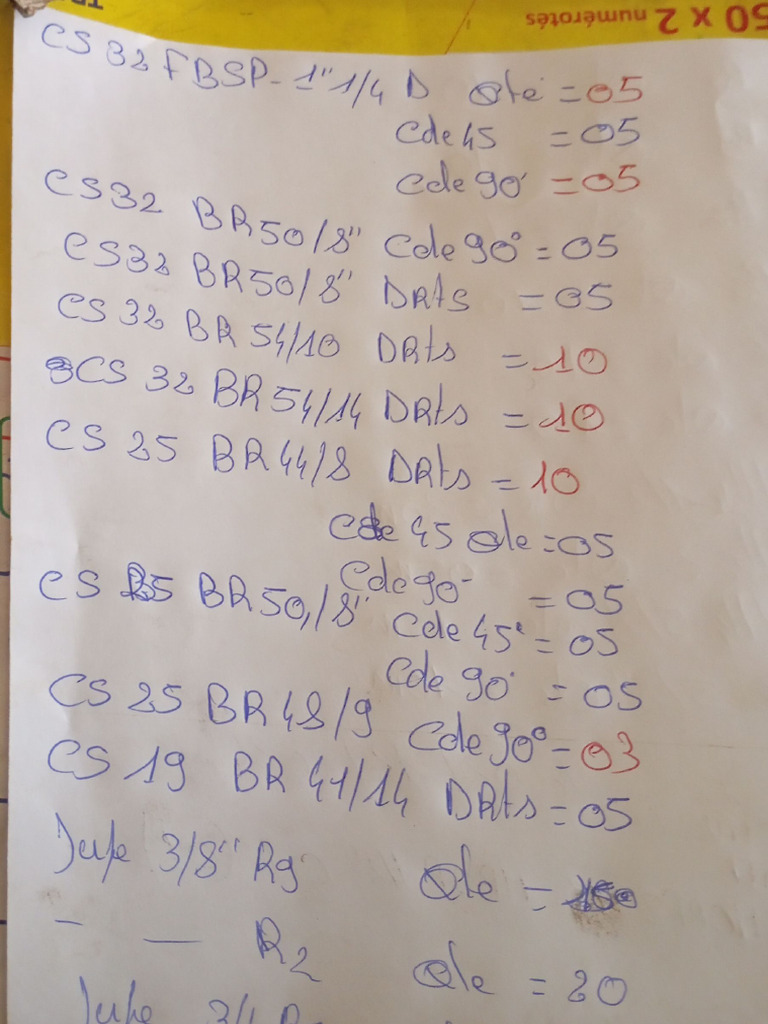 50 x 2 numérotés
CS 32 FBSP-1"1/4 D Qte = 05
Cde 45 = 05
Cde 90° = 05
CS 32 BR 50/8" Cde 90° = 05
CS 32 BR 50/8" DRts = 05
CS 32 BR 54/10 DRts = 10
CS 32 BR 54/14 DRts = 10
CS 25 BR 44/8 DRts = 10
Cde 45 Qte = 05
Cde 90° = 05
CS 25 BR 50/8" Cde 45° = 05
Cde 90° = 05
CS 25 BR 48/9 Cde 90° = 03
CS 19 BR 41/14 DRts = 05
Jupe 3/8" R9 Qte =
- — R2 Qte = 20
Jupe 3/4